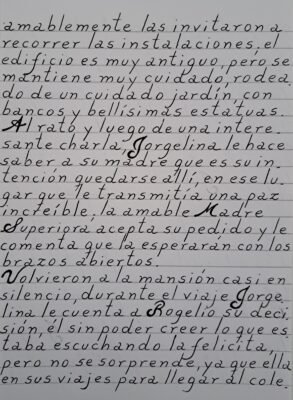 amablemente las invitaron a
recorrer las instalaciones, el
edificio es muy antiguo, pero se
mantiene muy cuidado, rodea.
do de un cuidado jardín, con
bancos y bellísimas estatuas.
Al rato y luego de una intere.
sante charla, Jorgelina le hace
saber a su madre que es su in.
tención quedarse allí, en ese lu.
gar que le transmitía una paz
increíble, la amable Madre
Superiora acepta su pedido y le
comenta que la esperarán con los
brazos abiertos.
Volvieron a la mansión casi en
silencio, durante el viaje Jorge.
lina le cuenta a Rogelio su deci.
sión, él sin poder creer lo que es.
taba escuchando la felicita,
pero no se sorprende, ya que ella
en sus viajes para llegar al cole.